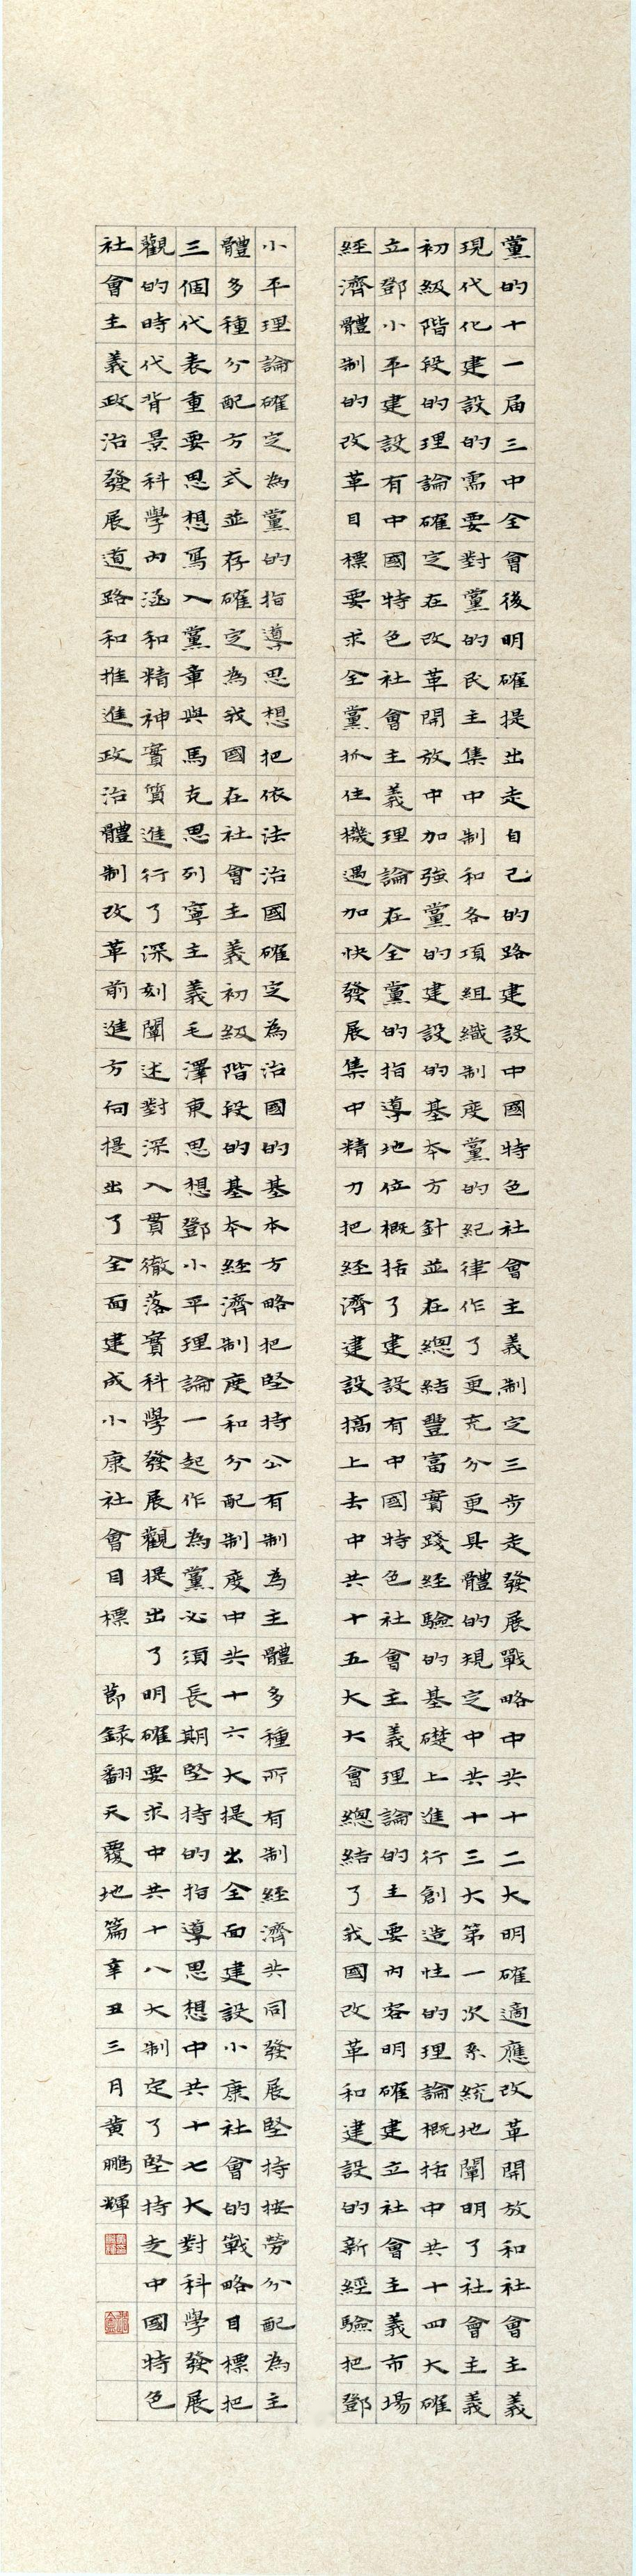 黨的十一届三中全會後明確提出走自己的路建設中國特色社會主義制定三步走發展戰略中共十二大明確適應改革開放和社會主義
現代化建設的需要對黨的民主集中制和各項組織制度黨的紀律作了更充分更具體的規定中共十三大第一次系統地闡明了社會主義
初級階段的理論確定在改革開放中加強黨的建設的基本方針並在總結豐富實踐經驗的基礎上進行創造性的理論概括中共十四大確
立鄧小平建設有中國特色社會主義理論在全黨的指導地位概括了建設有中國特色社會主義理論的主要內容明確建立社會主義市場
經濟體制的改革目標要求全黨抓住機遇加快發展集中精力把經濟建設搞上去中共十五大大會總結了我國改革和建設的新經驗把鄧
小平理論確定為黨的指導思想把依法治國確定為治國的基本方略把堅持公有制為主體多種所有制經濟共同發展堅持按勞分配為主
體多種分配方式並存確定為我國在社會主義初級階段的基本經濟制度和分配制度中共十六大提出全面建設小康社會的戰略目標把
三個代表重要思想寫入黨章與馬克思列寧主義毛澤東思想鄧小平理論一起作為黨必須長期堅持的指導思想中共十七大對科學發展
觀的時代背景科學內涵和精神實質進行了深刻闡述對深入貫徹落實科學發展觀提出了明確要求中共十八大制定了堅持走中國特色
社會主義政治發展道路和推進政治體制改革前進方向提出了全面建成小康社會目標 節錄翻天覆地篇辛丑三月黃鵬輝